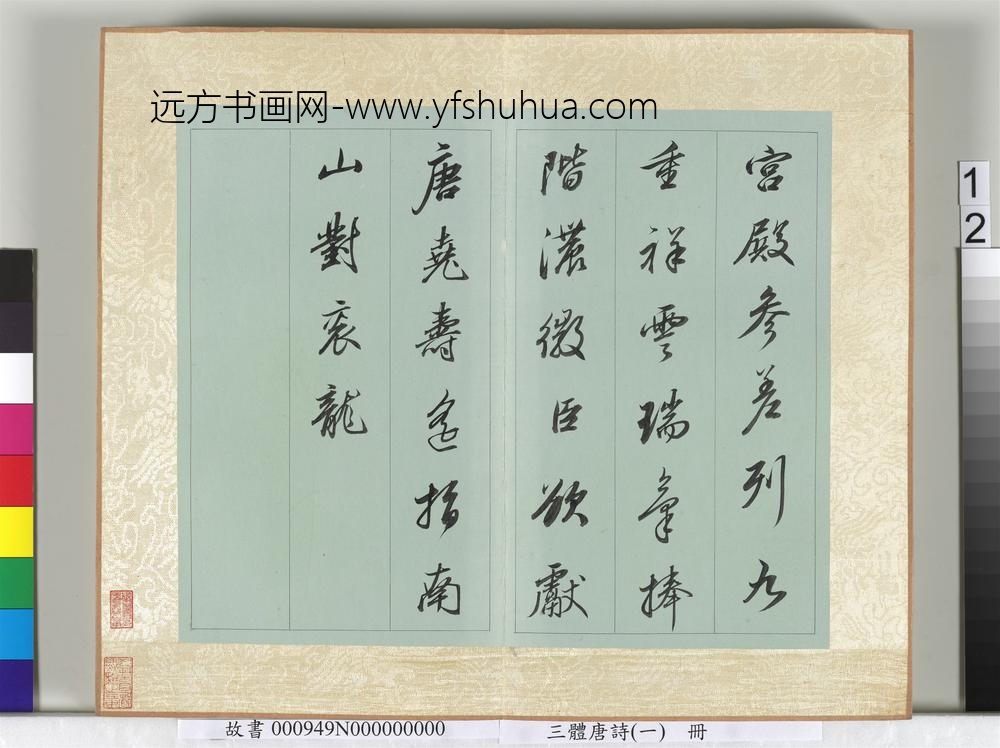 远方书画网-www.yfshuhua.com
宮殿參差列九
重祥雲瑞氣捧
階濃微臣欲獻
唐堯壽遙指南
山對衮龍
1
2
故書 000949N000000000
三體唐詩(一) 冊